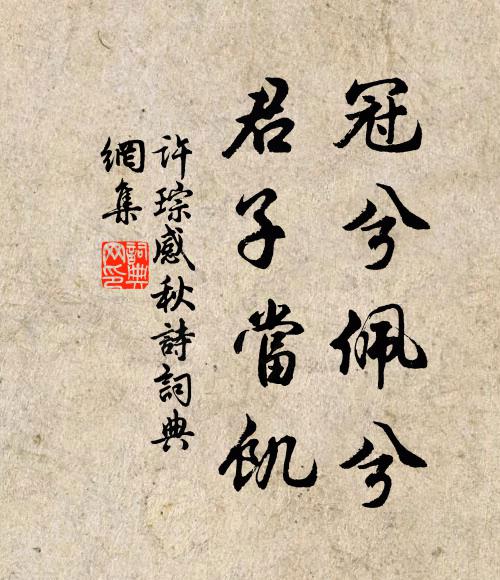 冠兮佩兮
君子當飢
许琮感秋詩詞典
網集
詞典
网印